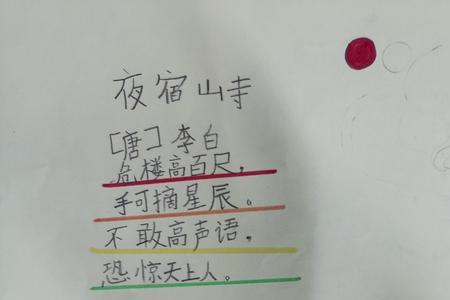 夜宿山寺
[唐]李白
危楼高百尺，
手可摘星辰。
不敢高声语，
恐惊天上人。